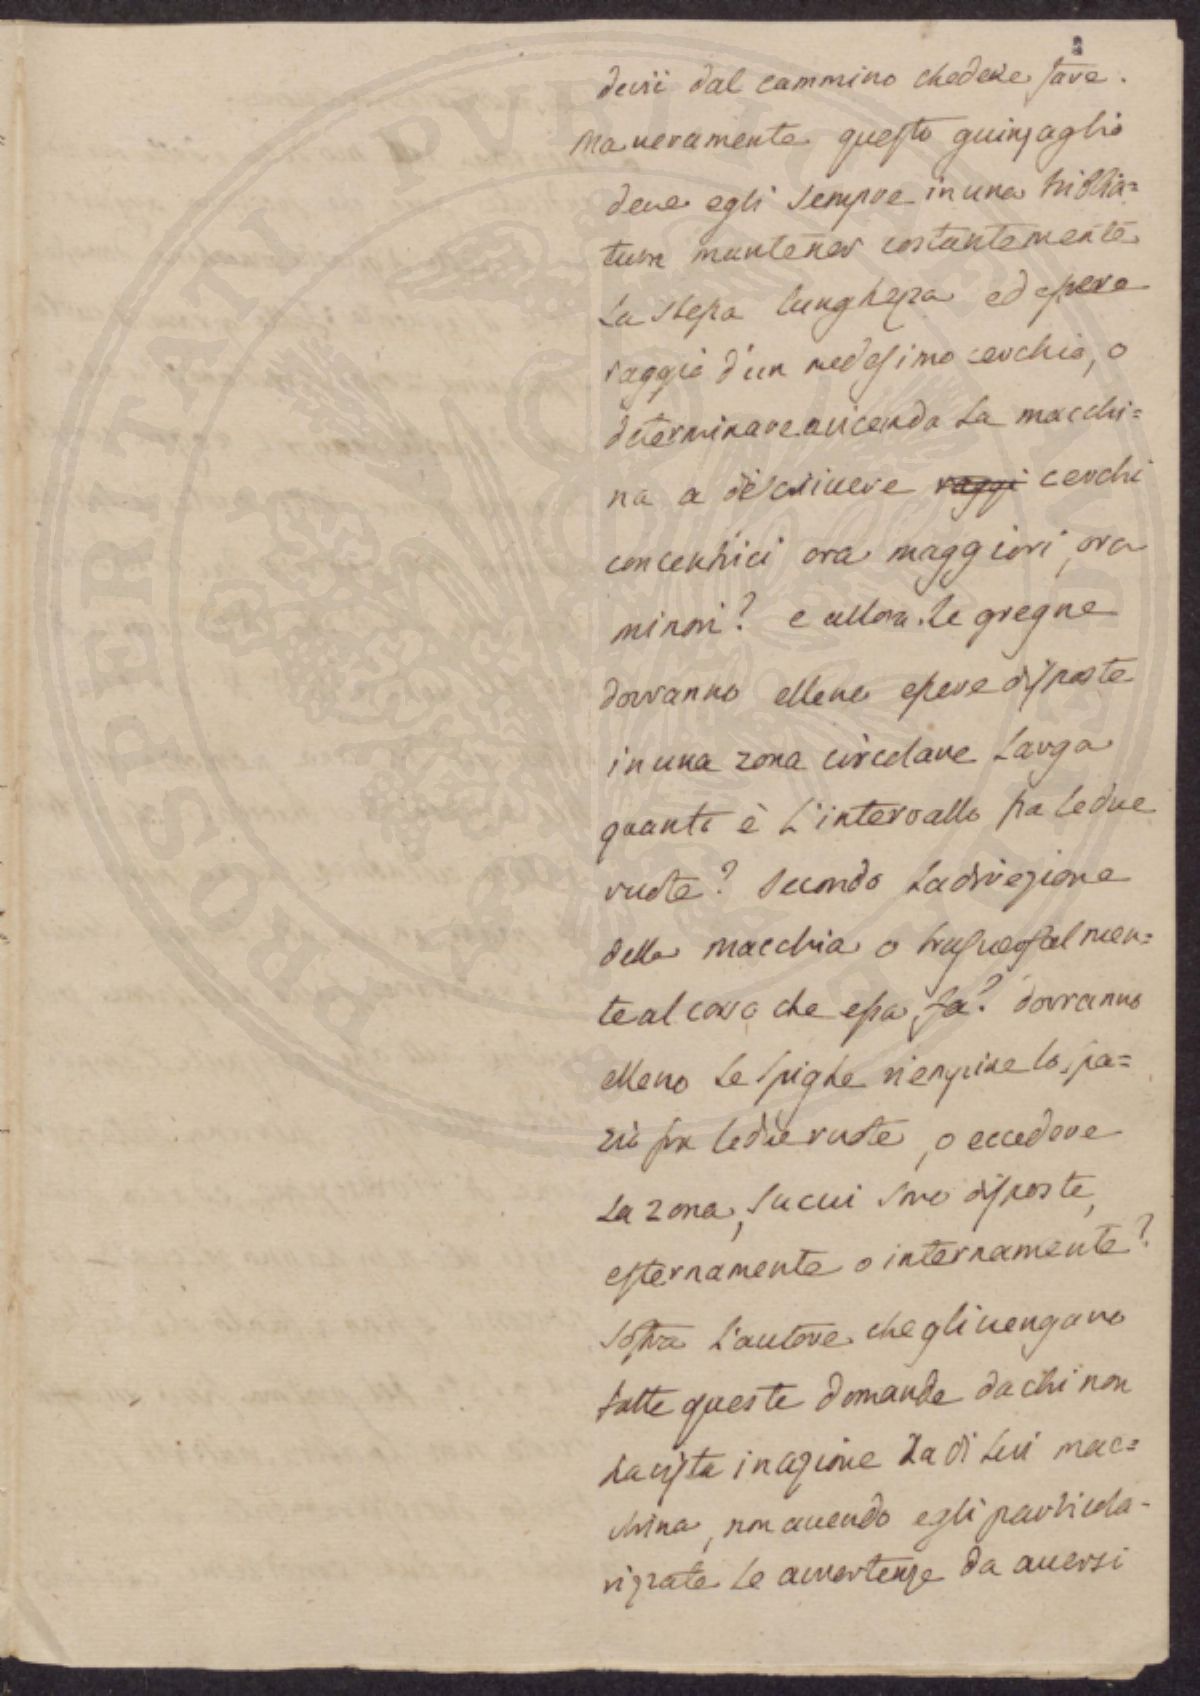 PROSPERITATI PVBLICAE
devii dal cammino che deve fare.
Ma veramente questo guinzaglio
deve egli sempre in una tribbia=
tura mantener costantemente
La stessa lunghezza ed essere
raggio d'un medesimo cerchio, o
determinare a vicenda La macchi=
na a descrivere raggi cerchi
concentrici ora maggiori, ora
minori? e allora le gregne
dovranno elleno essere disposte
in una zona circolare Larga
quanto è L'intervallo fra le due
ruote? Secondo La direzione
della macchia o trasversalmen=
te al corso che essa fa? dovranno
elleno Le spighe riempire lo spa=
zio fra le due ruote, o eccedere
La zona, su cui sono disposte,
esternamente o internamente?
Soffra L'autore che gli vengano
fatte queste domande da chi non
ha vista in azione La di Lui mac=
china, non avendo egli particola-
rizzate Le avvertenze da aversi